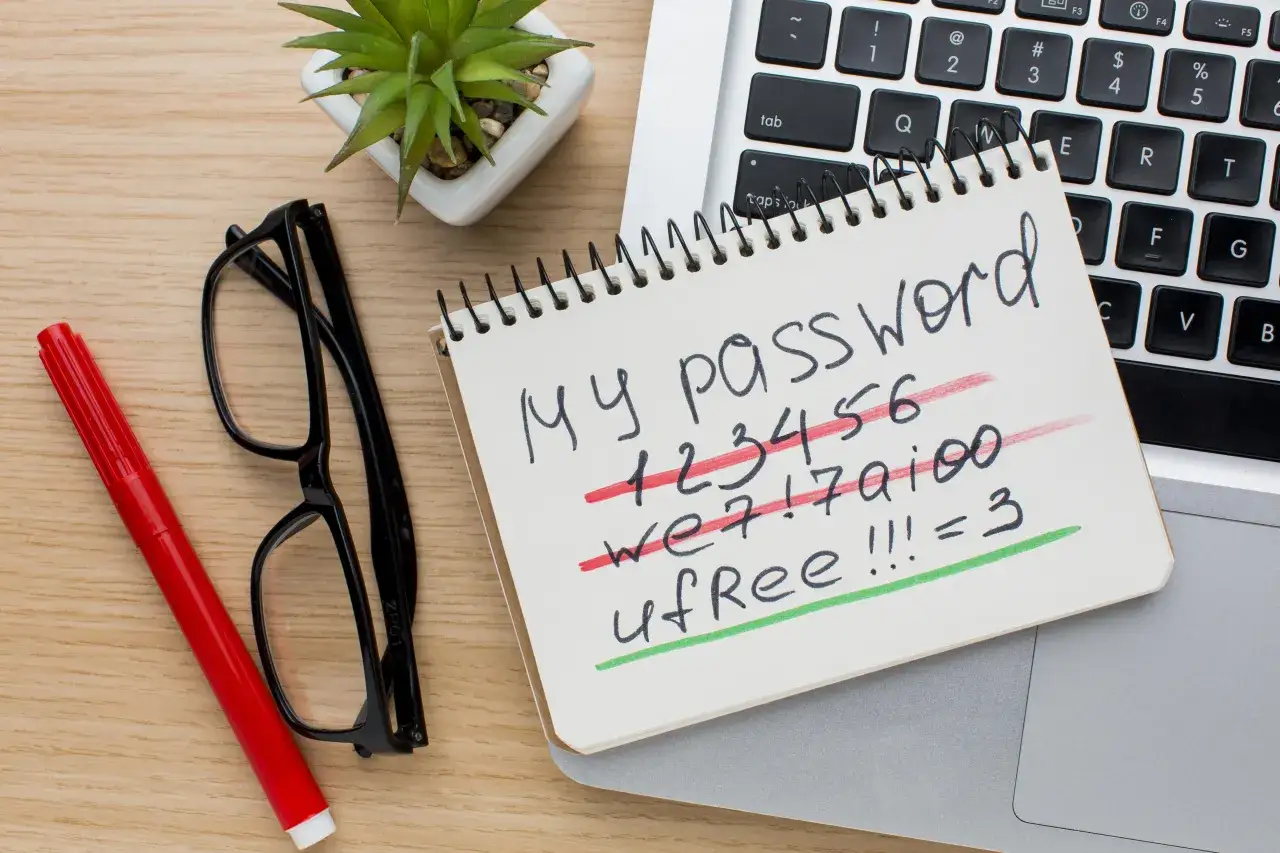 ~
! 1
@ 2
# 3
$ 4
% 5
F3
F4
F5
tab
Q
W
E
R
T
caps lock
F
G
C
V
B
My password
123456
we7!7aioo
ufRee!!!=3